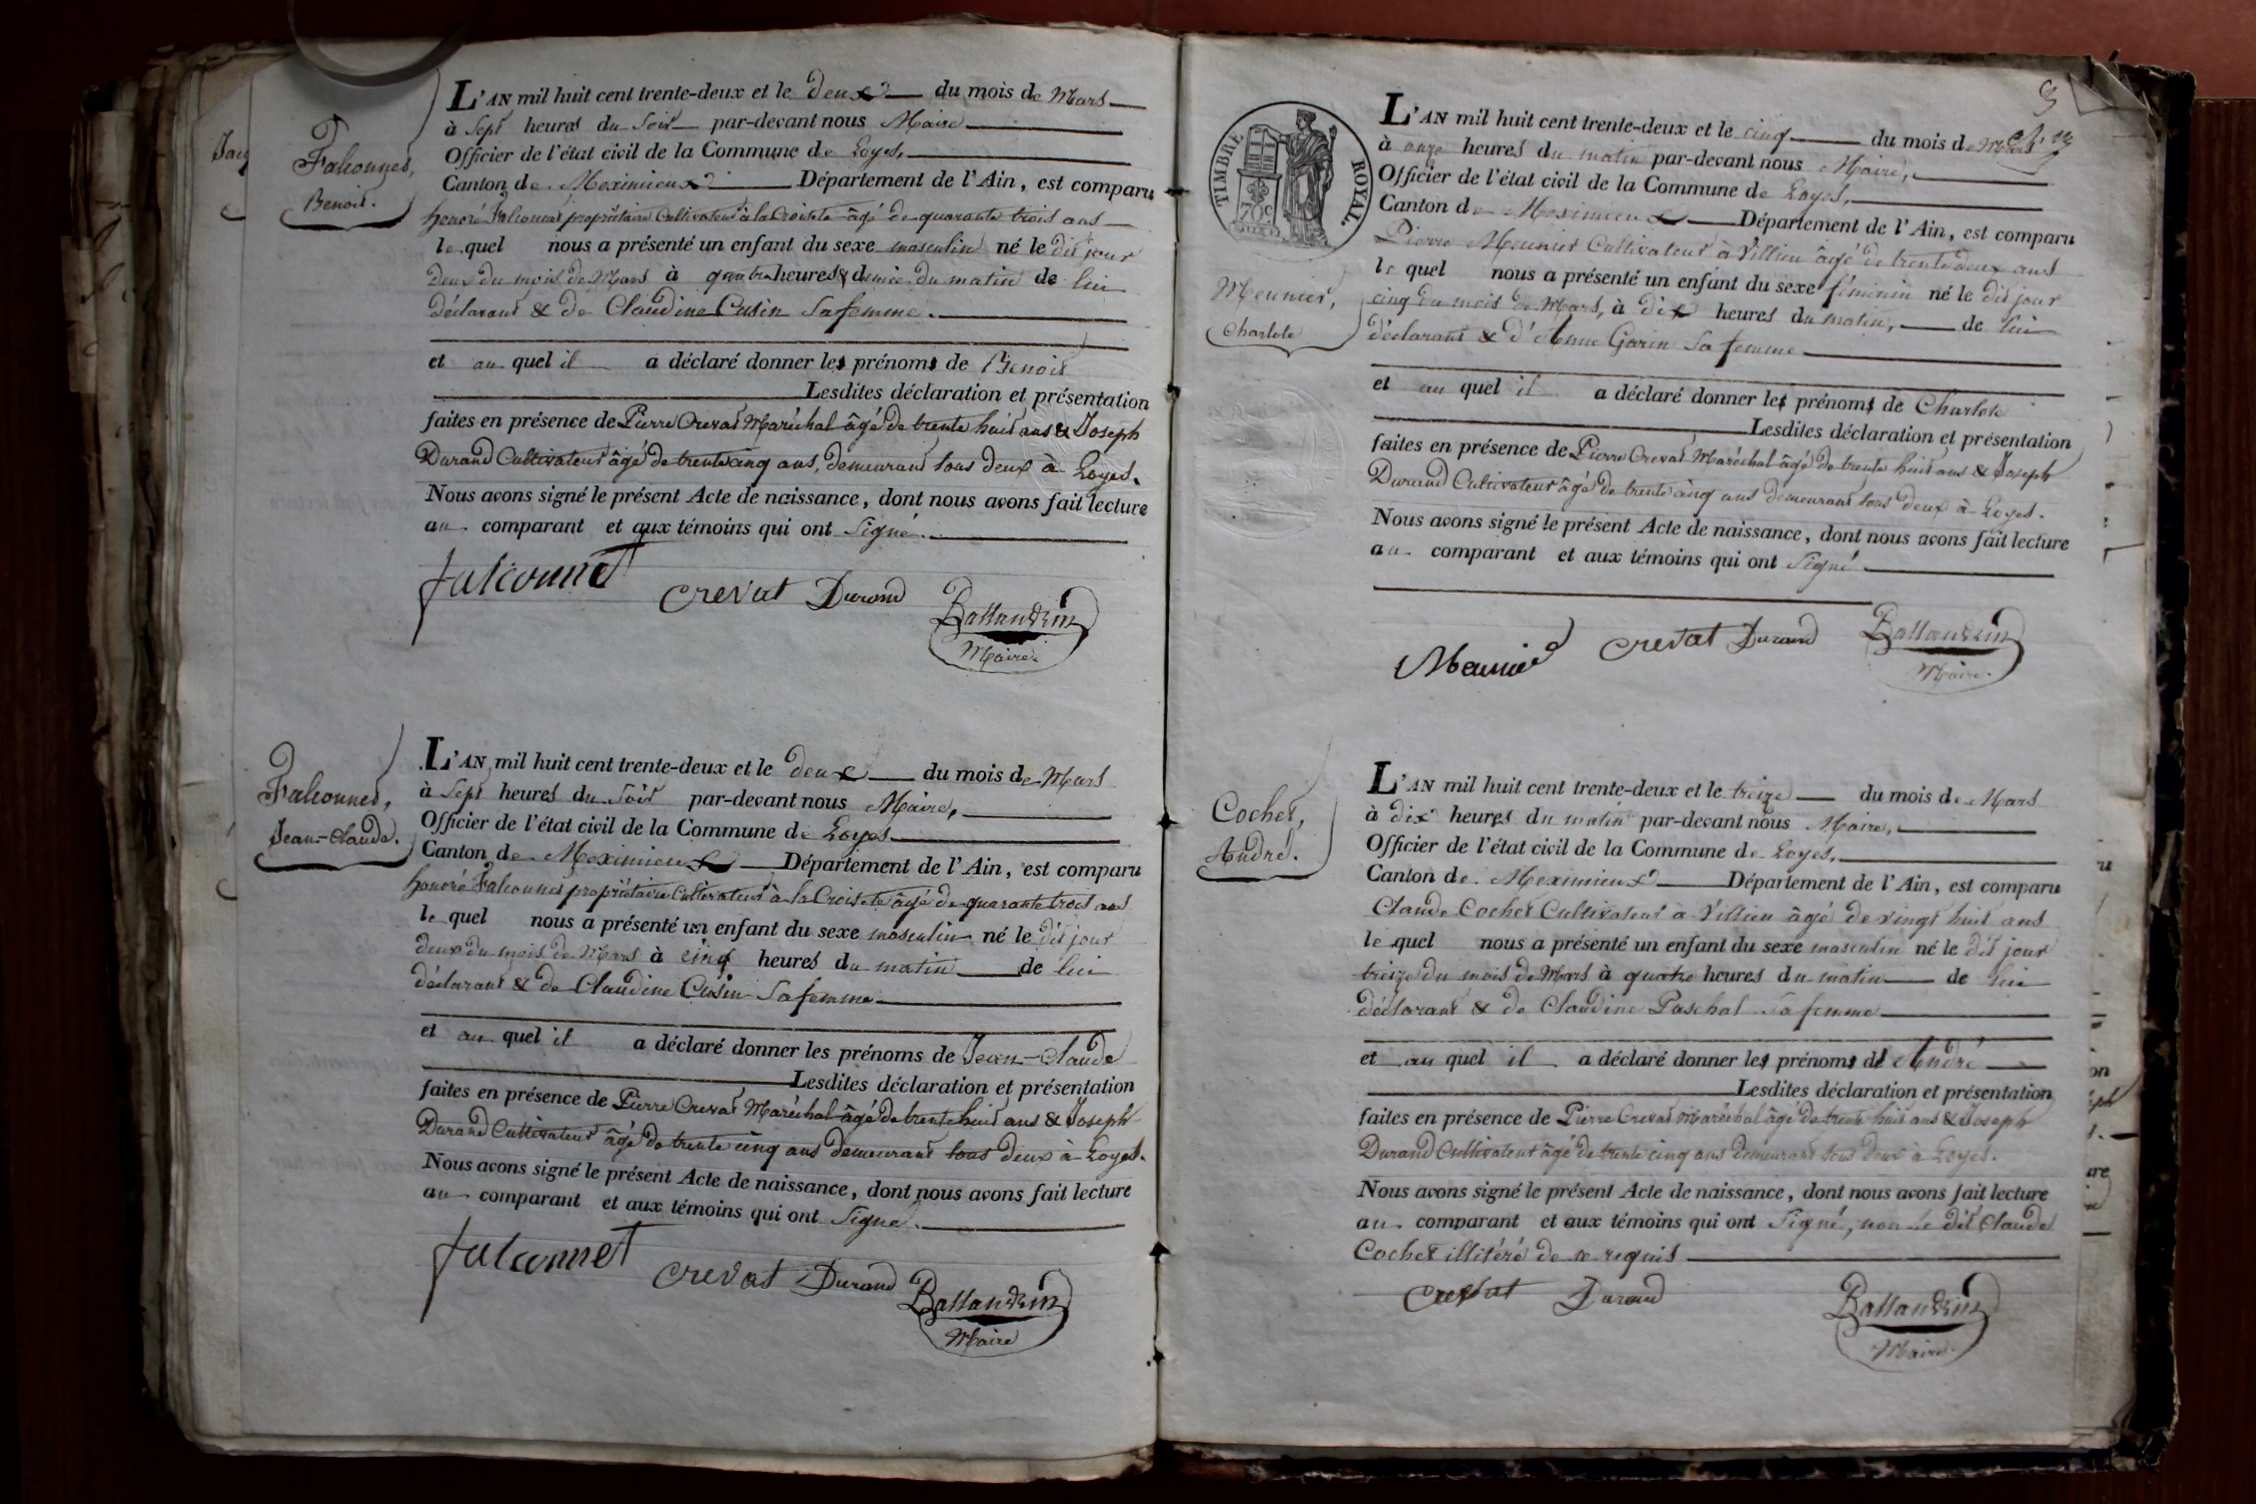 Falconnet,
Benoit.
L'AN mil huit cent trente-deux et le deux du mois de Mars
à Sept heures du Soir par-devant nous Maire
Officier de l'état civil de la Commune de Loyes,
Canton de Meximieux Département de l'Ain, est comparu
honoré Falconnet propriétaire Cultivateur à la Croisete âgé de quarante trois ans
le quel nous a présenté un enfant du sexe masculin né le dit jour
deux du mois de Mars à quatre heures & demie du matin de lui
déclarant & de Claudine Cusin Sa femme.
et au quel il a déclaré donner les prénoms de Benoit
Lesdites déclaration et présentation
faites en présence de Pierre Crevat Maréchal âgé de trente huit ans & Joseph
Durand Cultivateur âgé de trente cinq ans, demeurant tous deux à Loyes.
Nous avons signé le présent Acte de naissance, dont nous avons fait lecture
au comparant et aux témoins qui ont Signé.
falconnet
crevat Durand Ballandrin
Maire
Falconnet,
Jean-Claude.
L'AN mil huit cent trente-deux et le deux du mois de Mars
à Sept heures du Soir par-devant nous Maire,
Officier de l'état civil de la Commune de Loyes
Canton de Meximieux Département de l'Ain, est comparu
honoré Falconnet propriétaire Cultivateur à la Croisete âgé de quarante trois ans
le quel nous a présenté un enfant du sexe masculin né le dit jour
deux du mois de Mars à cinq heures du matin de lui
déclarant & de Claudine Cusin Sa femme
et au quel il a déclaré donner les prénoms de Jean-Claude
Lesdites déclaration et présentation
faites en présence de Pierre Crevat Maréchal âgé de trente huit ans & Joseph
Durand Cultivateur âgé de trente cinq ans demeurant tous deux à Loyes.
Nous avons signé le présent Acte de naissance, dont nous avons fait lecture
au comparant et aux témoins qui ont Signé.
falconnet
crevat Durand Ballandrin
Maire
TIMBRE ROYAL
70c
Meunier,
Charlote
L'AN mil huit cent trente-deux et le cinq du mois de Mars
à onze heures du matin par-devant nous Maire,
Officier de l'état civil de la Commune de Loyes,
Canton de Meximieux Département de l'Ain, est comparu
Pierre Meunier Cultivateur à Villieu âgé de trente deux ans
le quel nous a présenté un enfant du sexe féminin né le dit jour
cinq du mois de Mars, à dix heures du matin, de lui
déclarant & d'Anne Garin Sa femme
et au quel il a déclaré donner les prénoms de Charlote
Lesdites déclaration et présentation
faites en présence de Pierre Crevat Maréchal âgé de trente huit ans & Joseph
Durand Cultivateur âgé de trente cinq ans demeurant tous deux à Loyes.
Nous avons signé le présent Acte de naissance, dont nous avons fait lecture
au comparant et aux témoins qui ont Signé
Meunier crevat Durand Ballandrin
Maire.
Cochet,
André.
L'AN mil huit cent trente-deux et le treize du mois de Mars
à dix heures du matin par-devant nous Maire,
Officier de l'état civil de la Commune de Loyes,
Canton de Meximieux Département de l'Ain, est comparu
Claude Cochet Cultivateur à Villieu âgé de vingt huit ans
le quel nous a présenté un enfant du sexe masculin né le dit jour
treize du mois de Mars à quatre heures du matin de lui
déclarant & de Claudine Paschal Sa femme
et au quel il a déclaré donner les prénoms de André
Lesdites déclaration et présentation
faites en présence de Pierre Crevat Maréchal âgé de trente huit ans & Joseph
Durand Cultivateur âgé de trente cinq ans demeurant tous deux à Loyes.
Nous avons signé le présent Acte de naissance, dont nous avons fait lecture
au comparant et aux témoins qui ont Signé, non le dit Claude
Cochet illitéré de ce requis
crevat Durand Ballandrin
Maire.